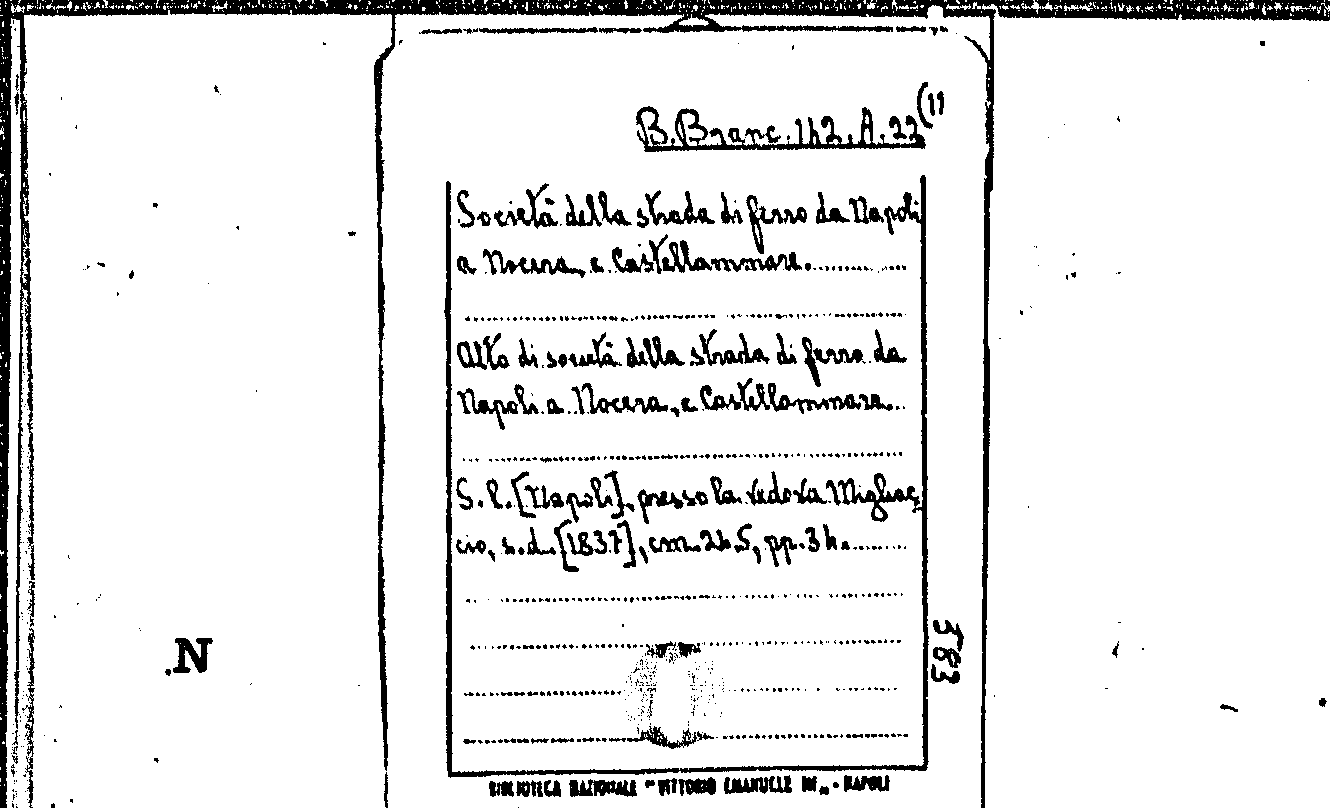 B. Branc. 142. A. 22 (11
Società della strada di ferro da Napoli
a Nocera, e Castellammare.
Atto di società della strada di ferro da
Napoli a Nocera, e Castellammare.
S. l. [Napoli], presso la vedova Migliac
cio, s.d. [1837], cm. 24.5, pp. 34.
583
N
BIBLIOTECA NAZIONALE "VITTORIO EMANUELE III" - NAPOLI